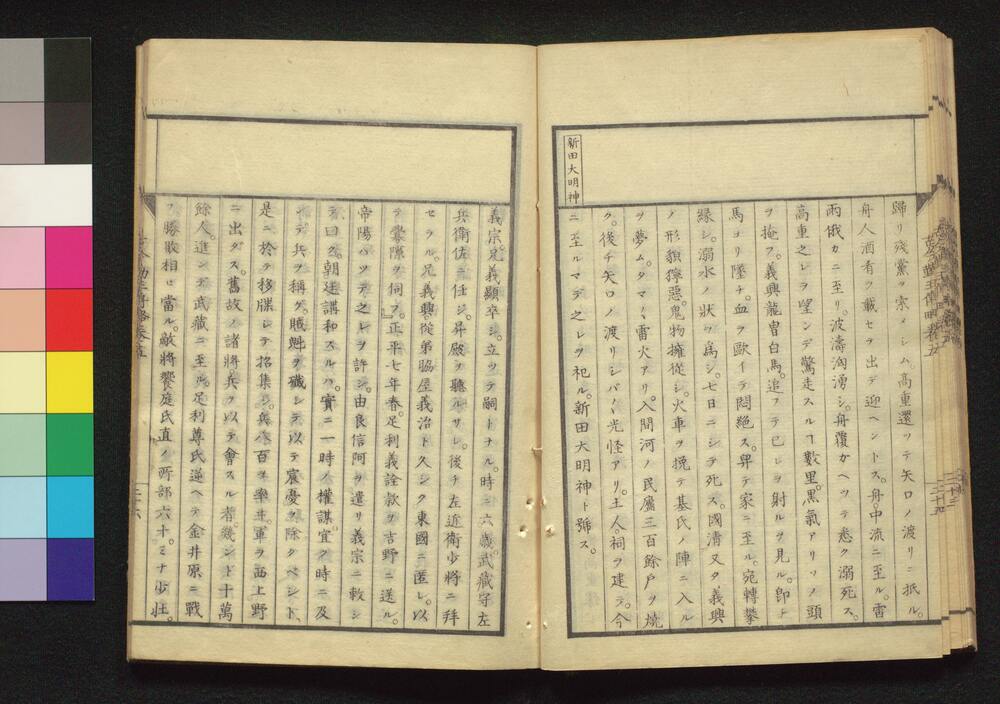 新田大明神
歸リ殘黨ヲ索メシム。高重還ツテ矢口ノ渡リニ抵ル。
舟人酒肴ヲ載セヲ出デ迎ヘントス。舟。中流ニ至ル。雷
雨俄カニ至リ。波濤洶湧シ。舟覆ガヘツテ悉ク溺死ス。
高重之レヲ望ンデ驚走スルヿ數里。黑氣アリソノ頭
ヲ掩フ。義興龍冑白馬。追フテ己レヲ射ルヲ見ル。即チ
馬ヨリ墜チ。血ヲ歐イテ悶絶ス。舁テ家ニ至ル。宛轉攀
緣シ。溺水ノ狀ヲ爲シ。七日ニシテ死ス。國淸又タ義興
ノ形貌獰惡。鬼物擁從シ。火車ヲ挽テ基氏ノ陣ニ入ル
ヲ夢ム。タマ〻雷火アリ。入間河ノ民廬三百餘戸ヲ燒
ク。後チ矢口ノ渡リシバ〻光怪アリ。土人。祠ヲ建テ。今
ニ至ルマデ之レヲ祀ル。新田大明神ト號ス。
義宗。兄義顯卒シ。立ツテ嗣トナル。時ニ六歳。武藏守左
兵衛佐ニ任シ。昇殿ヲ聽ルサレ。後チ左近衛少將ニ拜
セラル。兄義興從弟脇屋義治ト久シク東國ニ匿レ。以
テ釁隙ヲ伺フ。正平七年春。足利義詮款ヲ吉野ニ送ル。
帝陽ハツテ之レヲ許シ。由良信阿ヲ遣リ義宗ニ敕シ
テ曰ク。朝廷講和スルハ。實ニ一時ノ權謀。宜ク時ニ及
ンデ兵ヲ稱ゲ。賊魁ヲ殲シテ以テ宸憂ヲ除クベシト。
是ニ於テ移牒シテ招集シ。兵八百ヲ率井。軍ヲ西上野
ニ出ダス。舊故ノ諸將兵ヲ以テ會スル者。幾ンド十萬
餘人。進ンデ武藏ニ至ル。足利尊氏逆ヘテ金井原ニ戰
フ。勝敗相ヒ當ル。敵將饗庭氏直ノ所部六十。ミナ少壯。